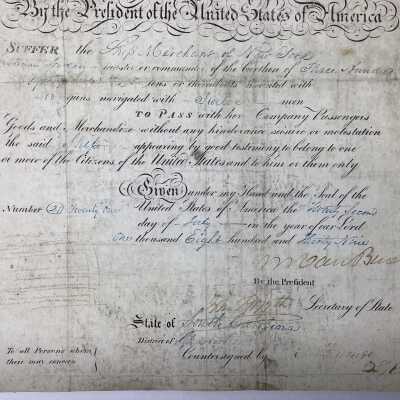 By the President of the United States of America
SUFFER the Ship Merchant of New York
master or commander of the burthen of Three Hundred
tons or thereabouts mounted with
guns navigated with Twelve men
TO PASS with her Company Passengers
Goods and Merchandize without any hinderance seisure or molestation
the said Ship appearing by good testimony to belong to one
or more of the Citizens of the United States and to him or them only
Given under my Hand and the Seal of the
Number United States of America the Twenty Second
day of July in the year of our Lord
One thousand Eight hundred and Thirty Nine
M Van Buren
By the President
Secretary of State
State of South Carolina
District of
Countersigned by
To all Persons whom
these may concern